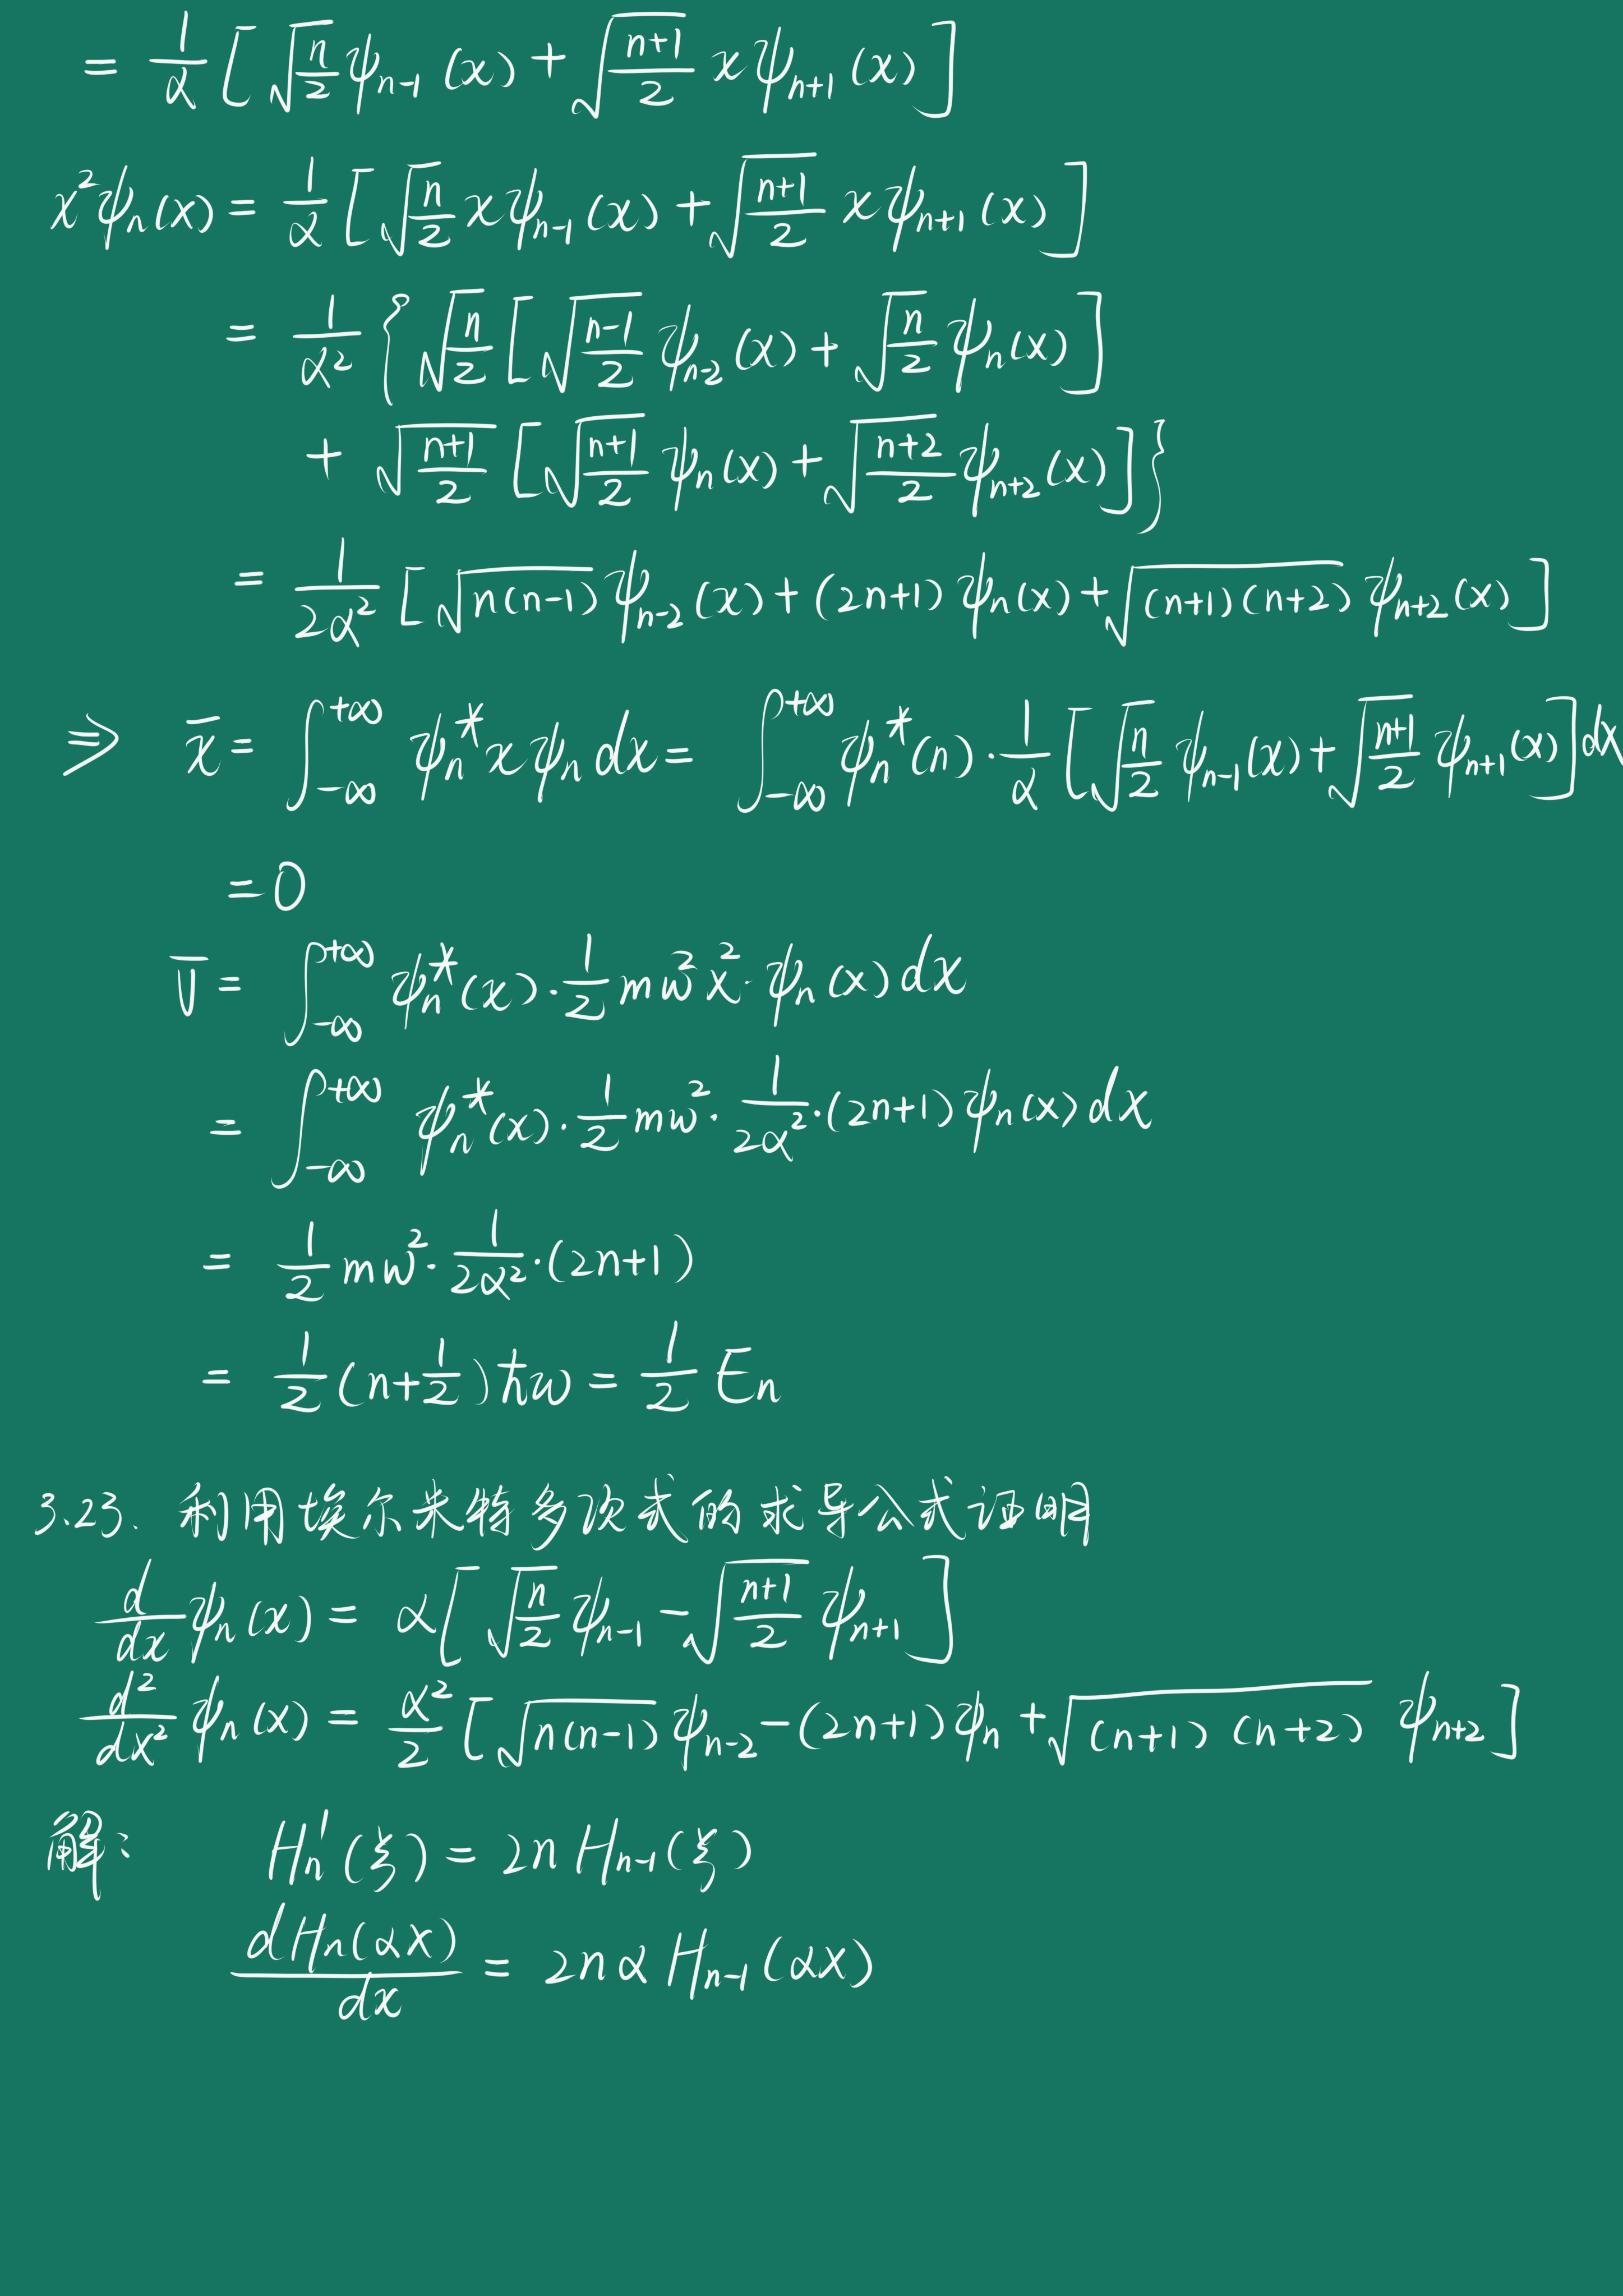 = \frac{1}{α} [ \sqrt{\frac{n}{2}} ψ_{n-1} (x) + \sqrt{\frac{n+1}{2}} x ψ_{n+1} (x) ]
x^2 ψ_n(x) = \frac{1}{α} [ \sqrt{\frac{n}{2}} x ψ_{n-1} (x) + \sqrt{\frac{n+1}{2}} x ψ_{n+1} (x) ]
= \frac{1}{α^2} { \sqrt{\frac{n}{2}} [ \sqrt{\frac{n-1}{2}} ψ_{n-2} (x) + \sqrt{\frac{n}{2}} ψ_n(x) ]
+ \sqrt{\frac{n+1}{2}} [ \sqrt{\frac{n+1}{2}} ψ_n(x) + \sqrt{\frac{n+2}{2}} ψ_{n+2}(x) ] }
= \frac{1}{2α^2} [ \sqrt{n(n-1)} ψ_{n-2}(x) + (2n+1) ψ_n(x) + \sqrt{(n+1)(n+2)} ψ_{n+2}(x) ]
⇒ \bar{x} = \int_{-∞}^{+∞} ψ_n^* x ψ_n dx = \int_{-∞}^{+∞} ψ_n^*(n) · \frac{1}{α} [ \sqrt{\frac{n}{2}} ψ_{n-1}(x) + \sqrt{\frac{n+1}{2}} ψ_{n+1}(x) ] dx
= 0
\bar{U} = \int_{-∞}^{+∞} ψ_n^*(x) · \frac{1}{2} m w^2 x^2 · ψ_n(x) dx
= \int_{-∞}^{+∞} ψ_n^*(x) · \frac{1}{2} m w^2 · \frac{1}{2α^2} · (2n+1) ψ_n(x) dx
= \frac{1}{2} m w^2 · \frac{1}{2α^2} · (2n+1)
= \frac{1}{2} (n+\frac{1}{2}) ħw = \frac{1}{2} E_n
3.23. 利用埃尔米特多项式的求导公式证明
\frac{d}{dx} ψ_n(x) = α [ \sqrt{\frac{n}{2}} ψ_{n-1} - \sqrt{\frac{n+1}{2}} ψ_{n+1} ]
\frac{d^2}{dx^2} ψ_n(x) = \frac{α^2}{2} [ \sqrt{n(n-1)} ψ_{n-2} - (2n+1) ψ_n + \sqrt{(n+1)(n+2)} ψ_{n+2} ]
解: H_n'(ξ) = 2n H_{n-1}(ξ)
\frac{dH_n(αx)}{dx} = 2nα H_{n-1}(αx)